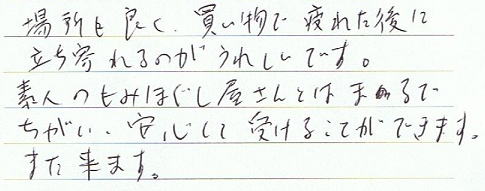 場所も良く、買い物で疲れた後に
立ち寄れるのがうれしいです。
素人のもみほぐし屋さんとはまるで
ちがい、安心して受けることができます。
また来ます。